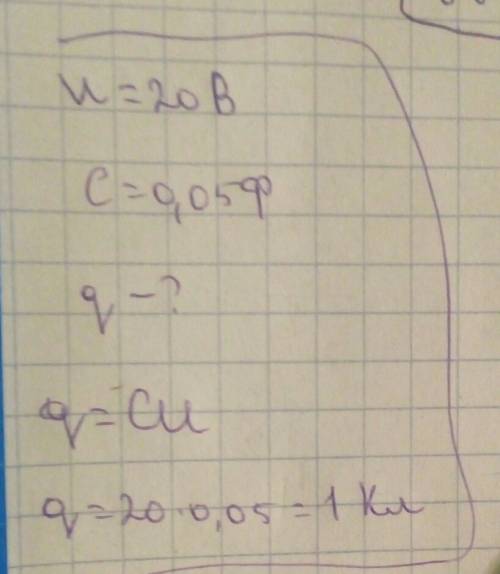 U = 20 В
C = 0,05 Ф
q - ?
q = CU
q = 20 · 0,05 = 1 Кл